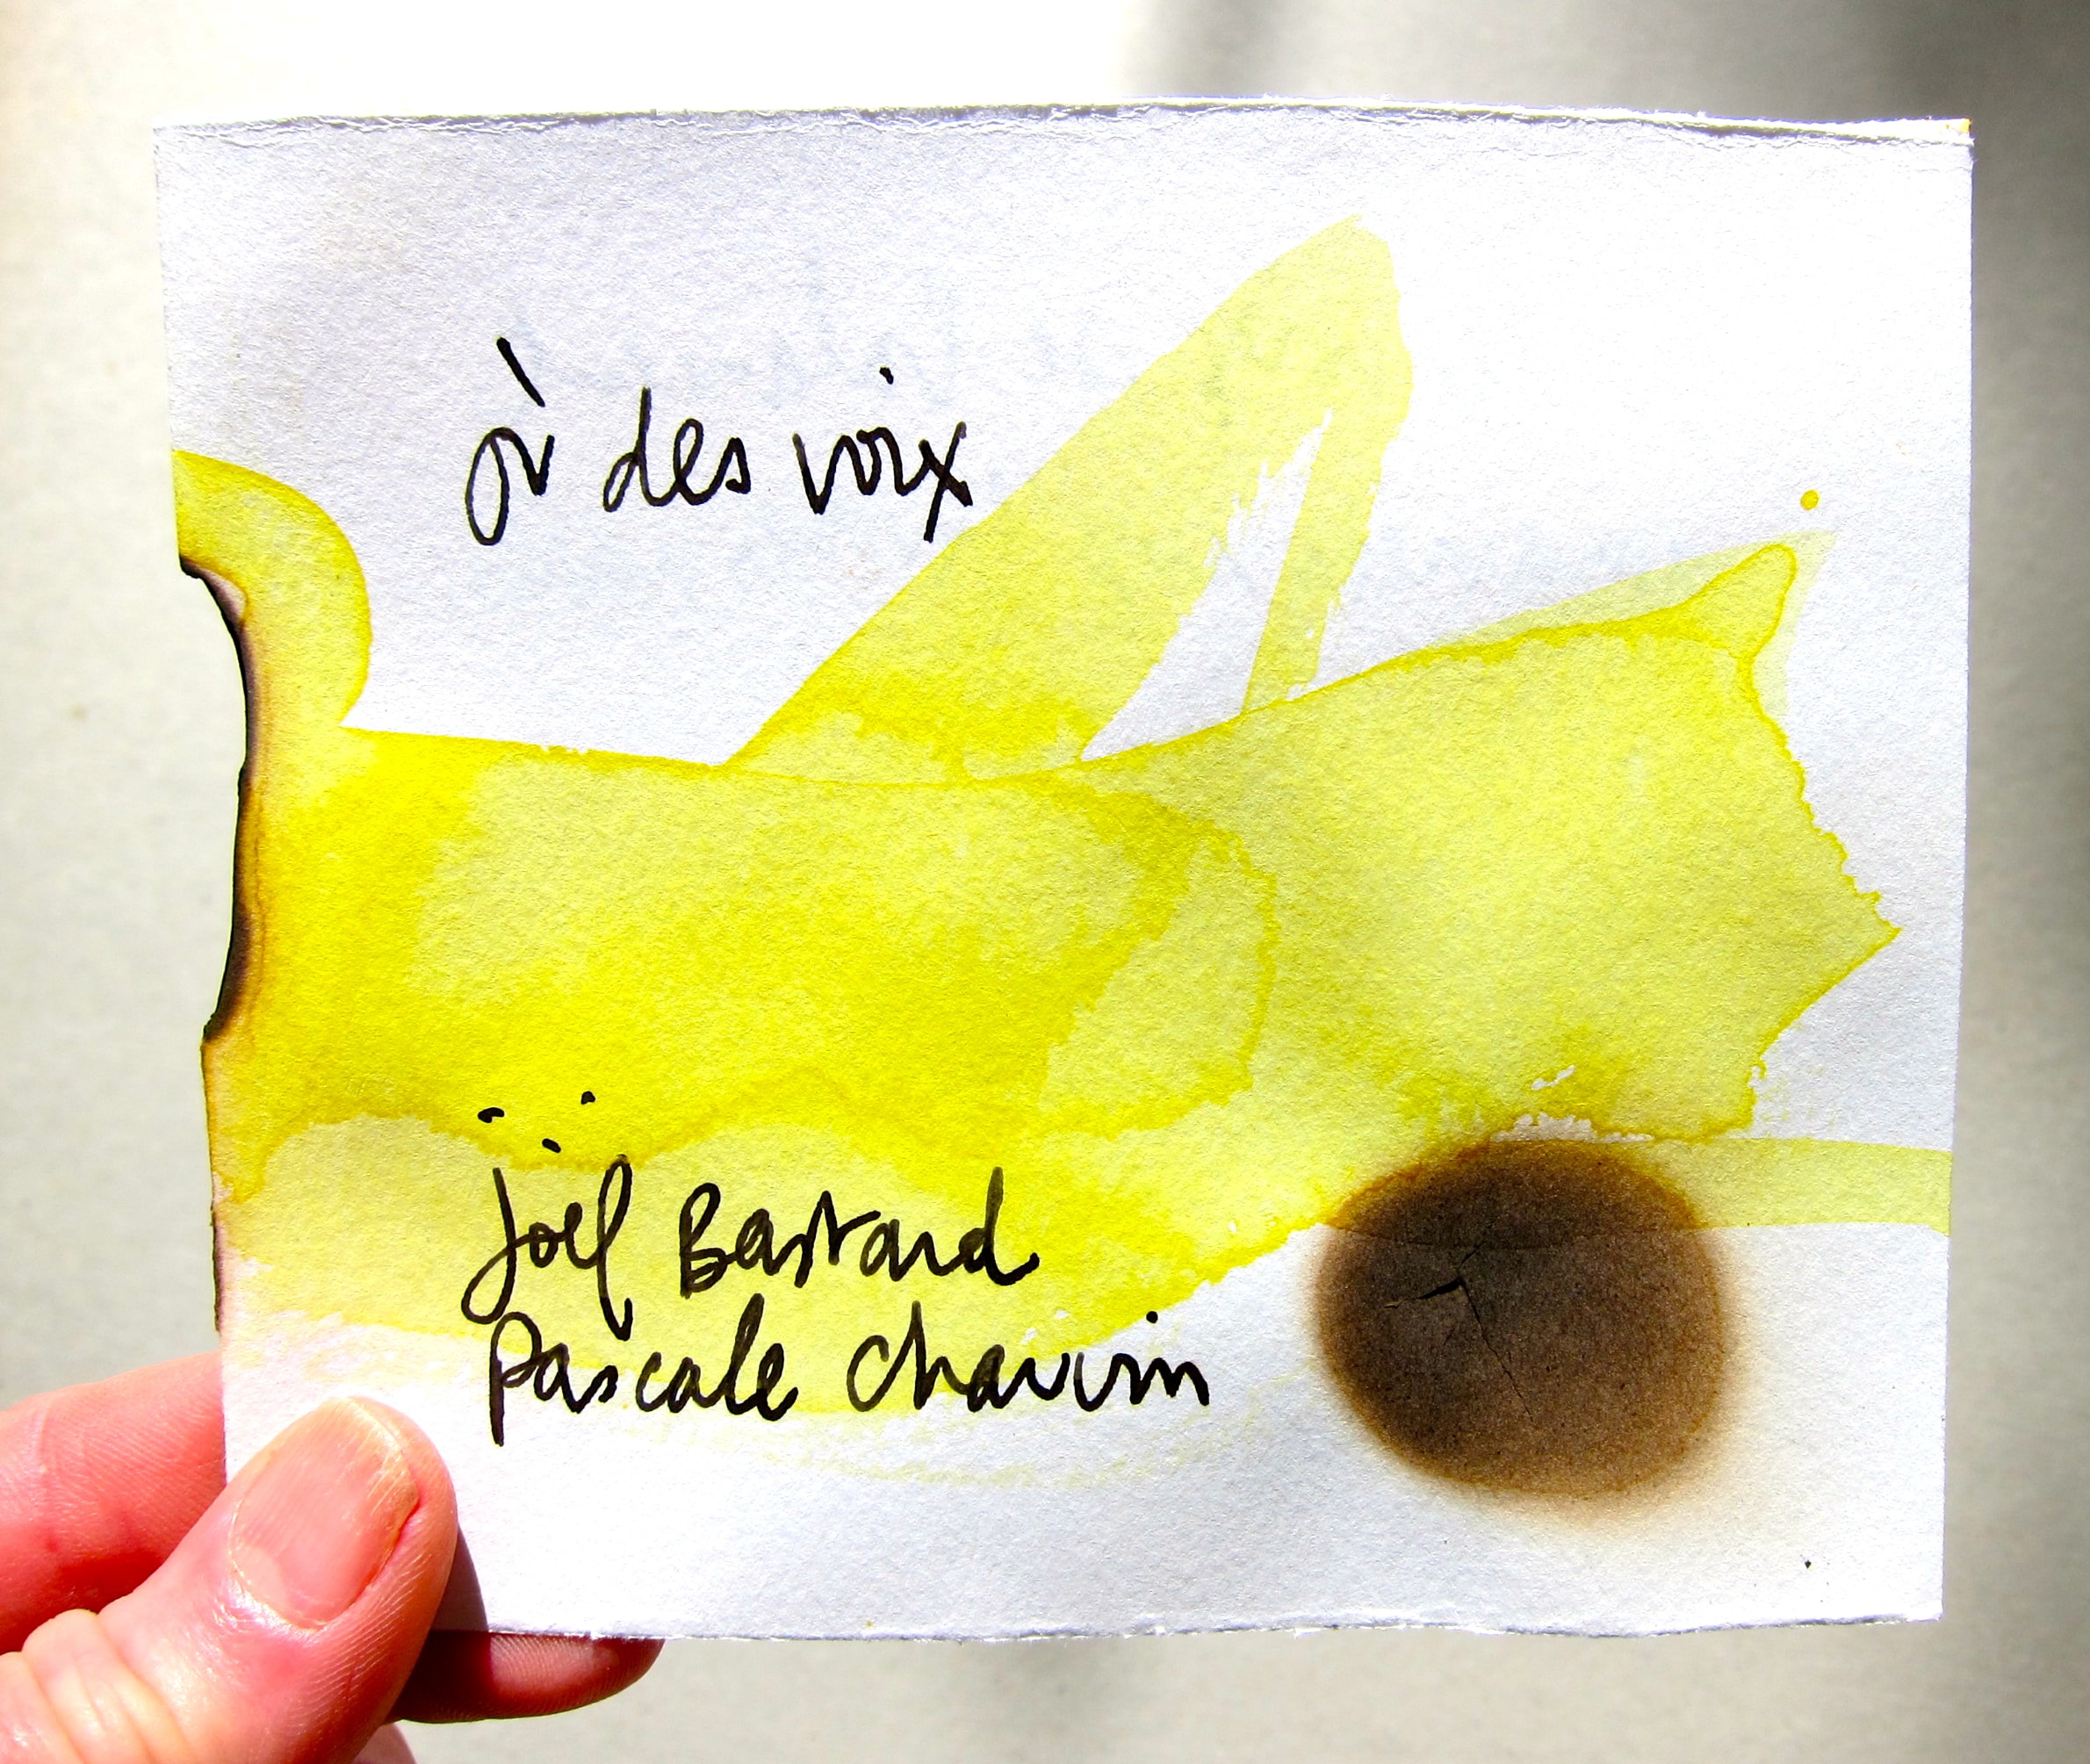 où des voix
Joël Bastard
Pascale Chavim